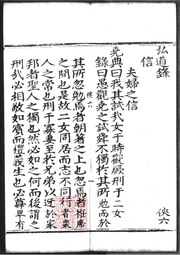 弘道錄
信 俠六
夫婦之信
堯典曰我其試哉女于時觀厥刑于二女
錄曰愚觀堯之試舜不獨於其所勉而於
俠六
其所忽勉焉者朝著之上也忽焉者袵席
之間也是故二女同居而志不同行者衆
人之常也刑于寡妻至于兄弟以 家
邦者聖人之獨也然必如之何而後謂之
刑 必相敬如賓而 生也必尊卑有